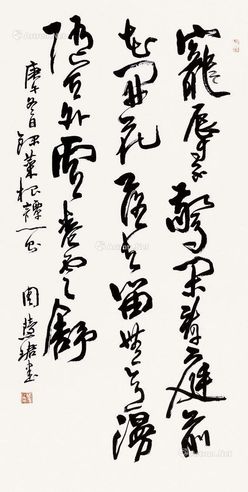 寵辱不驚閒看庭前
花開花落去留無意漫
隨天外雲卷云舒
庚午冬日錄菜根譚一
周慧珺書